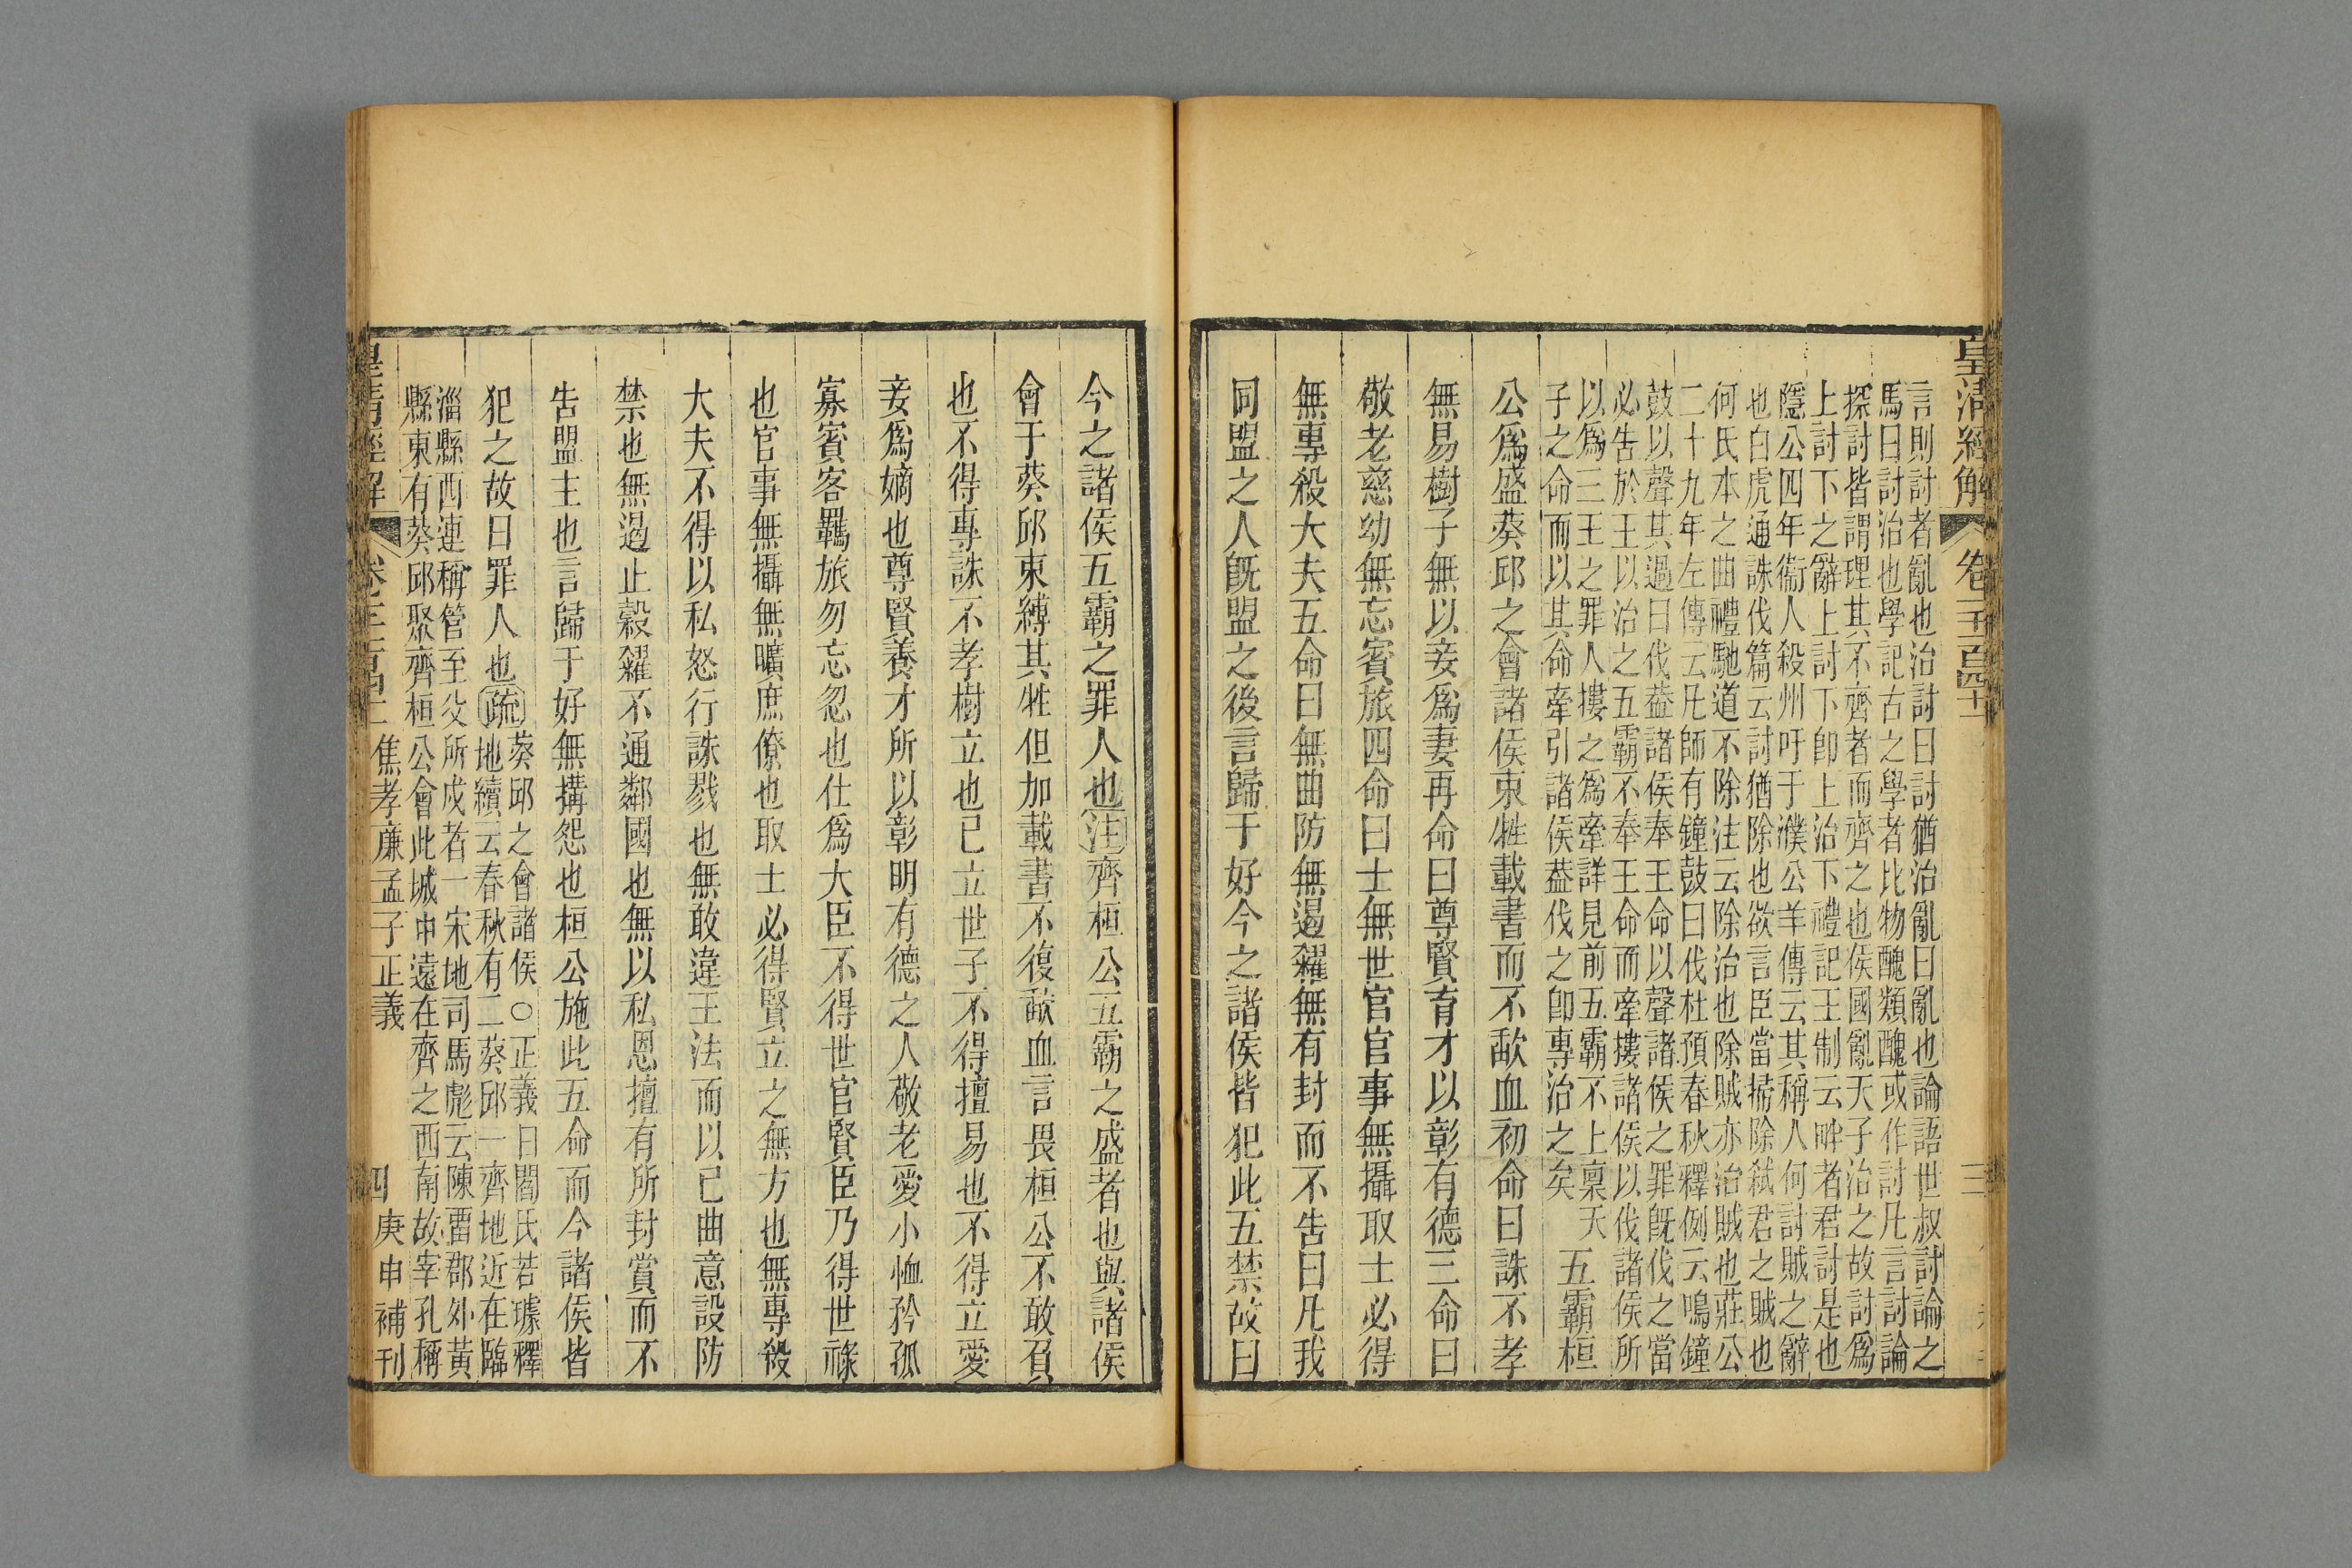 皇清經解
卷千百四十二
三
言則討者亂也治討曰討猶治亂曰亂也論語世叔討論之
馬曰討治也學記古之學者比物醜類醜或作討凡言討論
探討皆謂理其不齊者而齊之也侯國亂天子治之故討爲
上討下之辭上討下卽上治下禮記王制云畔者君討是也
隱公四年衞人殺州吁于濮公羊傳云其稱人何討賊之辭
也白虎通誅伐篇云討猶除也欲言臣當掃除弑君之賊也
何氏本之曲禮馳道不除注云除治也除賊亦治賊也莊公
二十九年左傳云凡師有鐘鼓曰伐杜預春秋釋例云鳴鐘
鼓以聲其過曰伐葢諸侯奉王命以聲諸侯之罪旣伐之當
必告於王以治之五霸不奉王命而牽摟諸侯以伐諸侯所
以爲三王之罪人摟之爲牽詳見前五霸不上稟天
子之命而以其命牽引諸侯葢伐之卽專治之矣
五霸桓
公爲盛葵邱之會諸侯束牲載書而不歃血初命曰誅不孝
無易樹子無以妾爲妻再命曰尊賢育才以彰有德三命曰
敬老慈幼無忘賓旅四命曰士無世官官事無攝取士必得
無專殺大夫五命曰無曲防無遏糴無有封而不告曰凡我
同盟之人旣盟之後言歸于好今之諸侯皆犯此五禁故曰
今之諸侯五霸之罪人也注齊桓公五霸之盛者也與諸侯
會于葵邱束縛其牲但加載書不復歃血言畏桓公不敢負
也不得專誅不孝樹立也已立世子不得擅易也不得立愛
妾爲嫡也尊賢養才所以彰明有德之人敬老愛小恤矜孤
寡賓客羈旅勿忘忽也仕爲大臣不得世官賢臣乃得世祿
也官事無攝無曠庶僚也取士必得賢立之無方也無專殺
大夫不得以私怒行誅戮也無敢違王法而以己曲意設防
禁也無遏止穀糴不通鄰國也無以私恩擅有所封賞而不
告盟主也言歸于好無搆怨也桓公施此五命而今諸侯皆
犯之故曰罪人也疏
葵邱之會諸侯○正義曰閻氏若璩釋
地續云春秋有二葵邱一齊地近在臨
淄縣西連稱管至父所戍者一宋地司馬彪云陳畱郡外黃
縣東有葵邱聚齊桓公會此城中遠在齊之西南故宰孔稱
皇清經解
卷千百四十二
焦孝廉孟子正義
四
庚申補刊